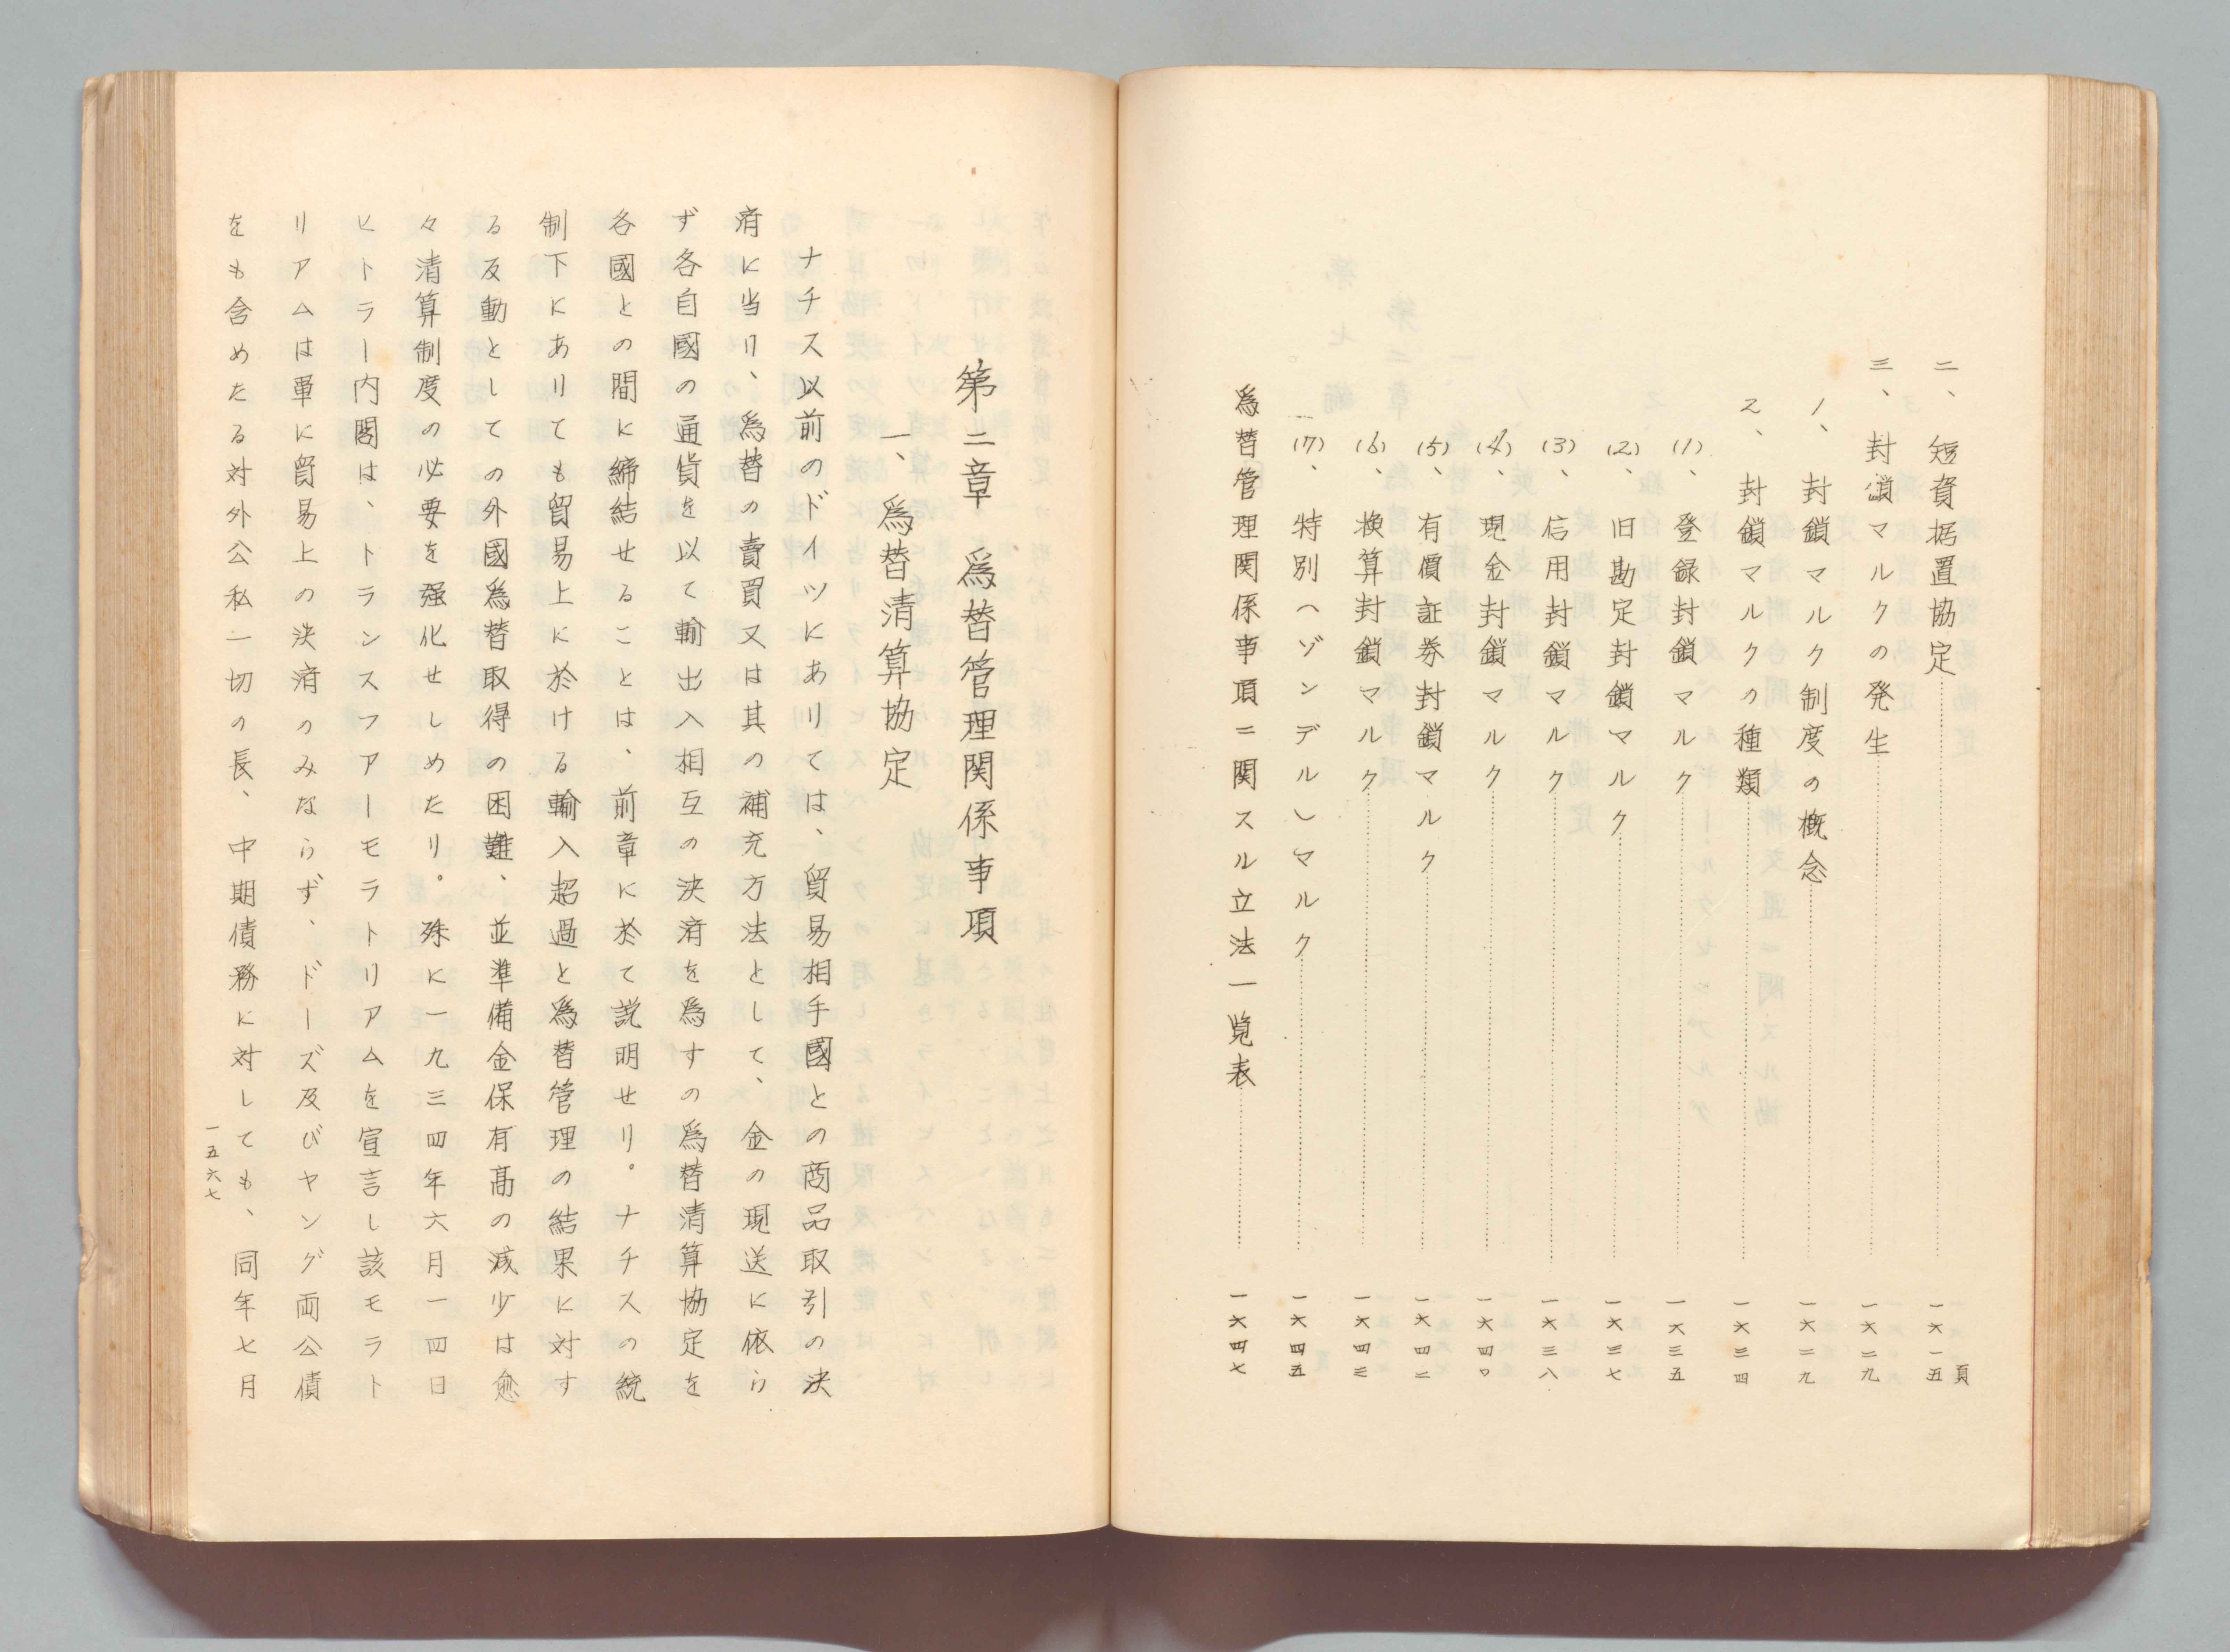 頁
二、短資据置協定…………一六一五
三、封鎖マルクの発生…………一六二九
1、封鎖マルク制度の概念…………一六二九
2、封鎖マルクの種類…………一六三四
(1)、登録封鎖マルク…………一六三五
(2)、旧勘定封鎖マルク…………一六三七
(3)、信用封鎖マルク…………一六三八
(4)、現金封鎖マルク…………一六四〇
(5)、有價証券封鎖マルク…………一六四二
(6)、換算封鎖マルク…………一六四三
(7)、特別(ヘゾンデル)マルク…………一六四五
爲替管理関係事項ニ関スル立法一覧表…………一六四七
第二章 爲替管理関係事項
一、爲替清算協定
ナチス以前のドイツにありては、貿易相手國との商品取引の決
済に当り、爲替の賣買又は其の補充方法として、金の現送に依ら
ず各自國の通貨を以て輸出入相互の決済を爲すの爲替清算協定を
各國との間に締結せることは、前章に於て説明せり。ナチスの統
制下にありても貿易上に於ける輸入超過と爲替管理の結果に対す
る反動としての外國爲替取得の困難、並準備金保有高の減少は愈
々清算制度の必要を强化せしめたり。殊に一九三四年六月一四日
ヒトラー内閣は、トランスファーモラトリアムを宣言し該モラト
リアムは單に貿易上の決済のみならず、ドーズ及びヤング両公債
をも含めたる対外公私一切の長、中期債務に対しても、同年七月
一五六七